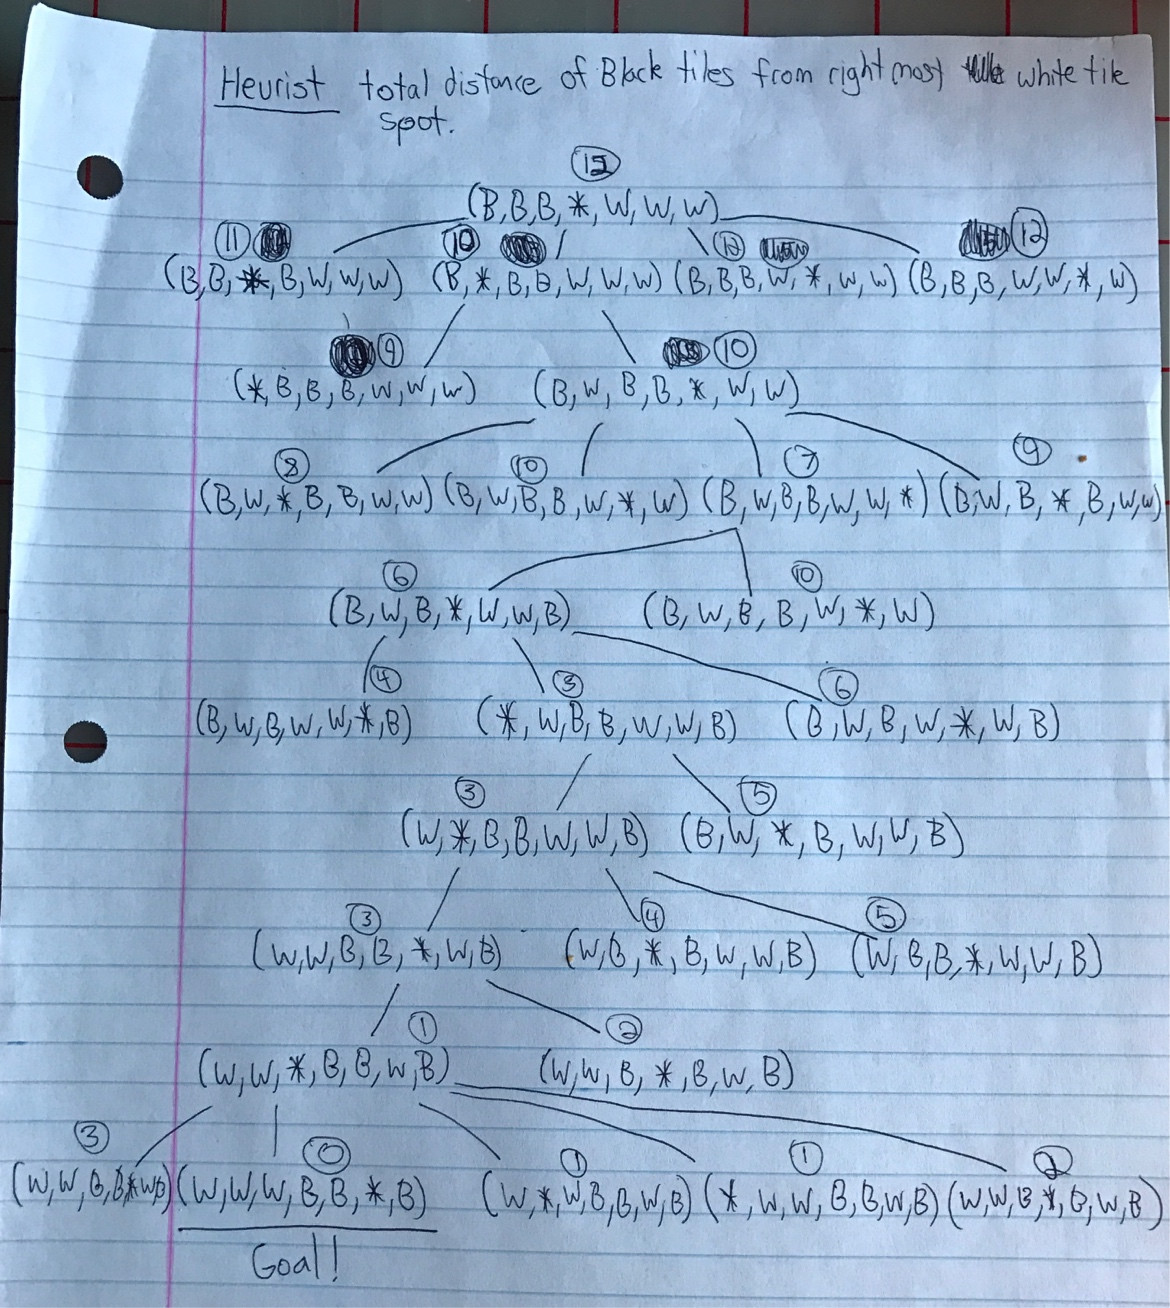 Heurist total distance of Black tiles from right most white tile
spot.
12
(B,B,B,*,W,W,W)
11 10 12 12
(B,B,*,B,W,W,W) (B,*,B,B,W,W,W) (B,B,B,W,*,W,W) (B,B,B,W,W,*,W)
9 10
(*,B,B,B,W,W,W) (B,W,B,B,*,W,W)
8 10 7 9
(B,W,*,B,B,W,W) (B,W,B,B,W,*,W) (B,W,B,B,W,W,*) (B,W,B,*,B,W,W)
6 10
(B,W,B,*,W,W,B) (B,W,B,B,W,*,W)
4 3 6
(B,W,B,W,W,*,B) (*,W,B,B,W,W,B) (B,W,B,W,*,W,B)
3 5
(W,*,B,B,W,W,B) (B,W,*,B,W,W,B)
3 4 5
(W,W,B,B,*,W,B) (W,B,*,B,W,W,B) (W,B,B,*,W,W,B)
1 2
(W,W,*,B,B,W,B) (W,W,B,*,B,W,B)
3 0 1 1 2
(W,W,B,B,*WB) (W,W,W,B,B,*,B) (W,*,W,B,B,W,B) (*,W,W,B,B,W,B) (W,W,B,*,B,W,B)
Goal!